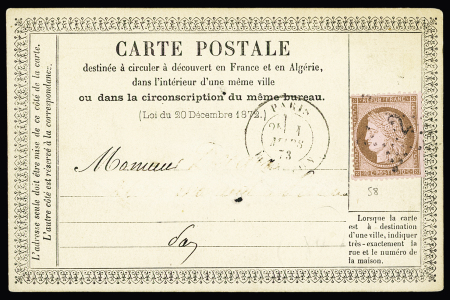 CARTE POSTALE
destinée à circuler à découvert en France et en Algérie,
dans l'intérieur d'une même ville
ou dans la circonscription du même bureau.
(Loi du 20 Décembre 1872.)
L'adresse seule doit être mise de ce côté de la carte.
L'autre côté est réservé à la correspondance.
PARIS
73
Monsieur
58
Lorsque la carte
est à destination
d'une ville, indiquer
très-exactement la
rue et le numéro de
la maison.